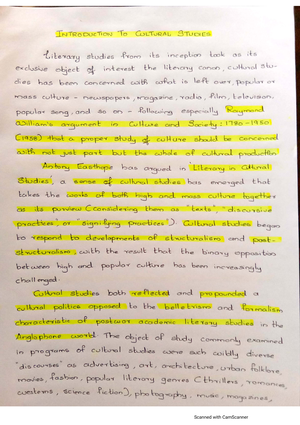 INTRODUCTION TO CULTURAL STUDIES
Literary studies from its inception took as its
exclusive object of interest the literary canon, cultural stu-
dies has been concerned with what is left over, popular or
mass culture - newspapers, magazine, radio, film, television,
popular song, and so on - following especially Raymond
Williams's argument in Culture and Society: 1780-1950
(1958) that a proper study of culture should be concerned
with not just part but the whole of cultural production
Antony Easthope has argued in 'Literary in Cultural
Studies', a sense of cultural studies has emerged that
takes the work of both high and mass culture together
as its purview (considering them as 'texts', "discursive
practices', or 'signifying practices'). Cultural studies began
to respond to developments of structuralism and post-
structuralism, with the result that the binary opposition
between high and popular culture has been increasingly
challenged.
Cultural studies both reflected and propounded a
cultural politics opposed to the belletrism and formalism
characteristic of postwar academic literary studies in the
Anglophone world. The object of study commonly examined
in programs of cultural studies were such wildly diverse
'discourses' as advertising, art, architecture, urban folklore,
movies, fashion, popular literary genres (thrillers, romances,
westerns, science fiction), photography, music, magazines,
Scanned with CamScanner